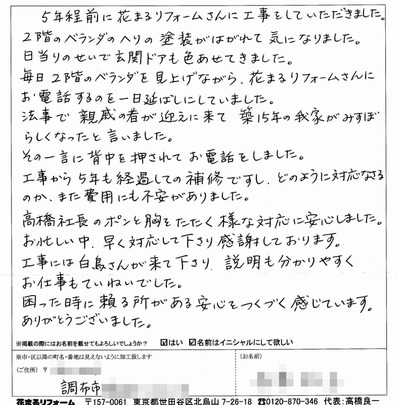 5年程前に花まるリフォームさんに工事をしていただきました。
2階のベランダのヘリの塗装がはがれて気になりました。
日当りのせいで玄関ドアも色あせてきました。
毎日2階のベランダを見上げながら、花まるリフォームさんに
お電話するのを一日延ばしにしていました。
法事で親戚の者が迎えに来て築15年の我家がみすぼ
らしくなったと言いました。
その一言に背中を押されてお電話をしました。
工事から5年も経過しての補修ですし、どのように対応なさる
のか、また費用にも不安がありました。
高橋社長のポンと胸をたたく様な対応に安心しました。
お忙しい中、早く対応して下さり感謝しております。
工事には白鳥さんが来て下さり、説明も分かりやすく
お仕事もていねいでした。
困った時に頼る所がある安心をつくづく感じています。
ありがとうございました。
※掲載の際にはお名前を載せてもよろしいでしょうか? ☑はい ☑名前はイニシャルにして欲しい
※市・区以降の町名・番地は見えないように加工致します
(ご住所) 〒 (お名前)
調布市
花まるリフォーム 〒157-0061 東京都世田谷区北烏山7-26-18 ☎0120-870-346 代表:高橋良一